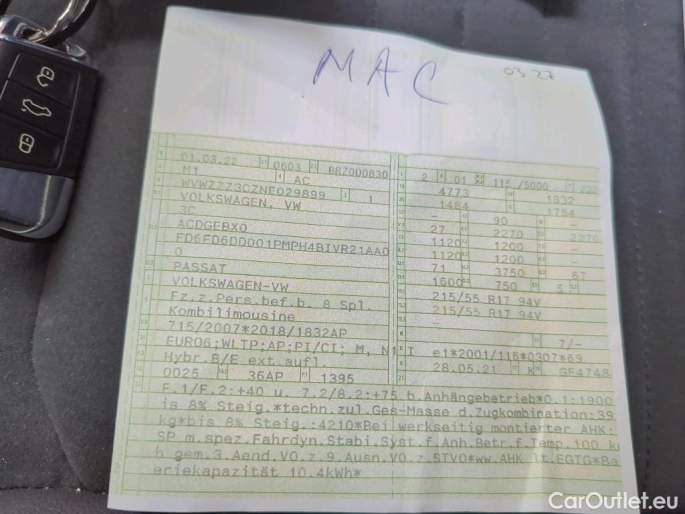 MAC 03 27
01.03.22 0603 BRZ000830
M1 AC
WVWZZZ3CZNE029899 1
VOLKSWAGEN, VW
3C
ACDGEBX0
FD6FD6DD001PMPH4BIVR21AA0
0
PASSAT
VOLKSWAGEN-VW
Fz.z.Pers.bef.b. 8 Spl.
Kombilimousine
715/2007*2018/1832AP
EURO6;WLTP;AP;PI/CI; M, N1 I
Hybr.B/E ext.aufl.
0025 36AP 1395
2 01 115 /5000
4773 1832
1484
- 90 -
27 2270 2270
1120 1200 -
1120 1200 -
71 3750 67
1600 750 5
215/55 R17 94V
215/55 R17 94V
-
- 7/-
e1*2001/116*0307*69
28.05.21 K GF4748
F.1/F.2:+40 u. 7.2/8.2:+75 b.Anhängebetrieb*O.1:1900
is 8% Steig.*techn.zul.Ges-Masse d.Zugkombination:39
kg*bis 8% Steig.:4210*Bei werkseitig montierter AHK:
SP m.spez.Fahrdyn.Stabi.Syst.f.Anh.Betr.f.Temp.100 k
h gem.3.Aend.VO.z.9.Ausn.VO.z.STVO*ww.AHK lt.EGTG*Ba
eriekapazität 10.4kWh*
CarOutlet.eu